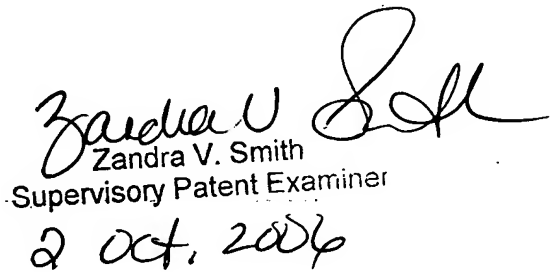 Zandra V Smith
Zandra V. Smith
Supervisory Patent Examiner
2 Oct. 2006